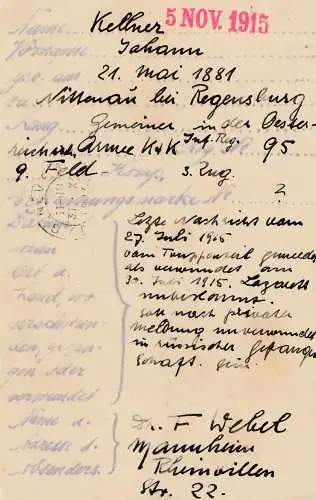 5 NOV. 1915
Name Kellner
Vorname Johann
geb. am 21. Mai 1881
zu Nittenau bei Regensburg
Rang Gemeiner in der Oester-
reichisch. Armee K & K Inf. Reg. 95
9. Feld Komp. 3. Zug.
Erkennungsmarke Nr. ?
Letzte Nachricht vom
27. Juli 1905
vom Truppenteil gemeldet
als verwundet am
30. Juli 1915. Lazarett
unbekannt.
Soll nach privater
Meldung unverwundet
in russischer Gefangen
schaft sein.
Datum
wann
Ort u.
Land, wo
verschwun-
den, gefan-
gen oder
verwundet
Name u.
Adresse d.
Absenders.
Dr. F Webel
Mannheim
Rheinvillen
Str. 22.